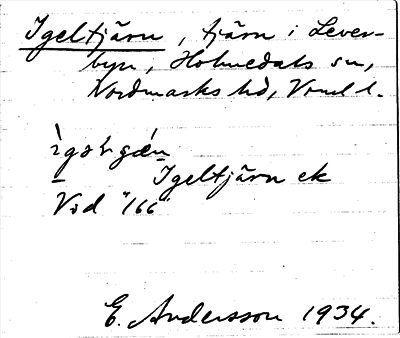 Igeltjärn, tjärn i Lever-
byn, Holmedals sn,
Nordmarks hd, Vrml l.
Igeltjärn ek
Vid "166"
E. Andersson 1934.